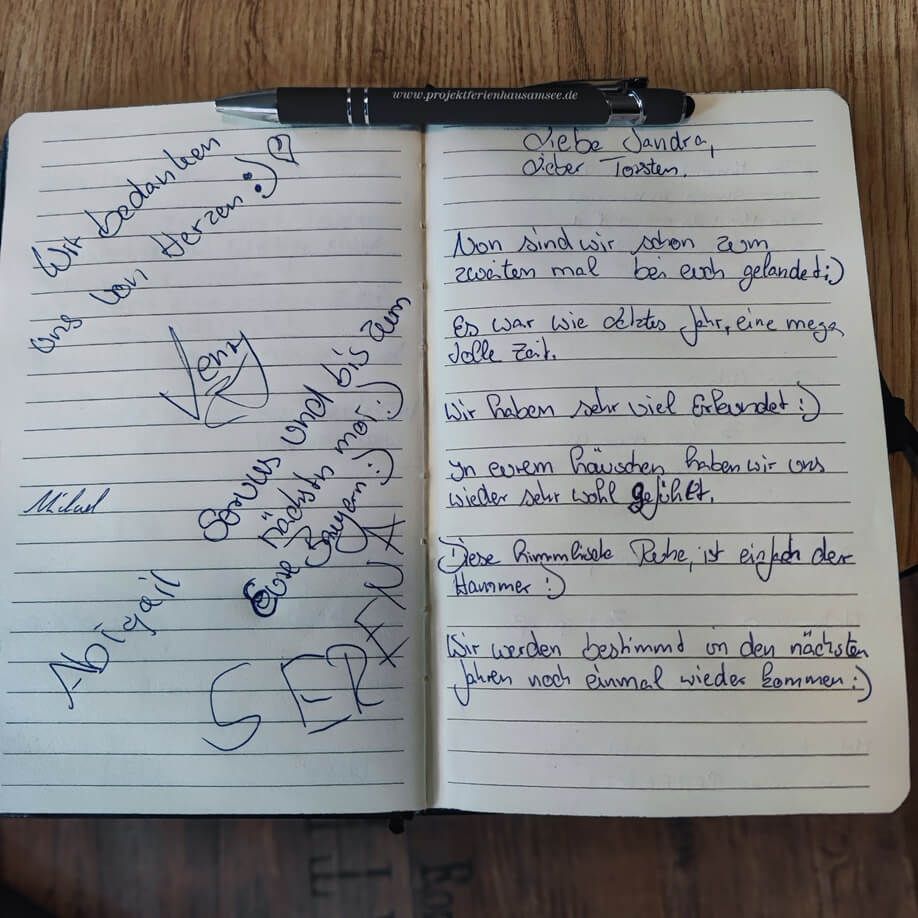 www.projektferienhausamsee.de
Wir bedanken
uns von Herzen :)
Servus bis zum
nächsten mal :)
Eure Bayern :)
Michael
Abigail
SERENA
Liebe Sandra,
Lieber Torsten.
Nun sind wir schon zum
zweiten mal bei euch gelandet :)
Es war wie letztes Jahr, eine mega
tolle Zeit.
Wir haben sehr viel Erkundet :)
In eurem häuschen haben wir uns
wieder sehr wohl gefühlt.
Diese himmlische Ruhe, ist einfach der
Hammer :)
Wir werden bestimmd in den nächsten
Jahren noch einmal wieder kommen :)